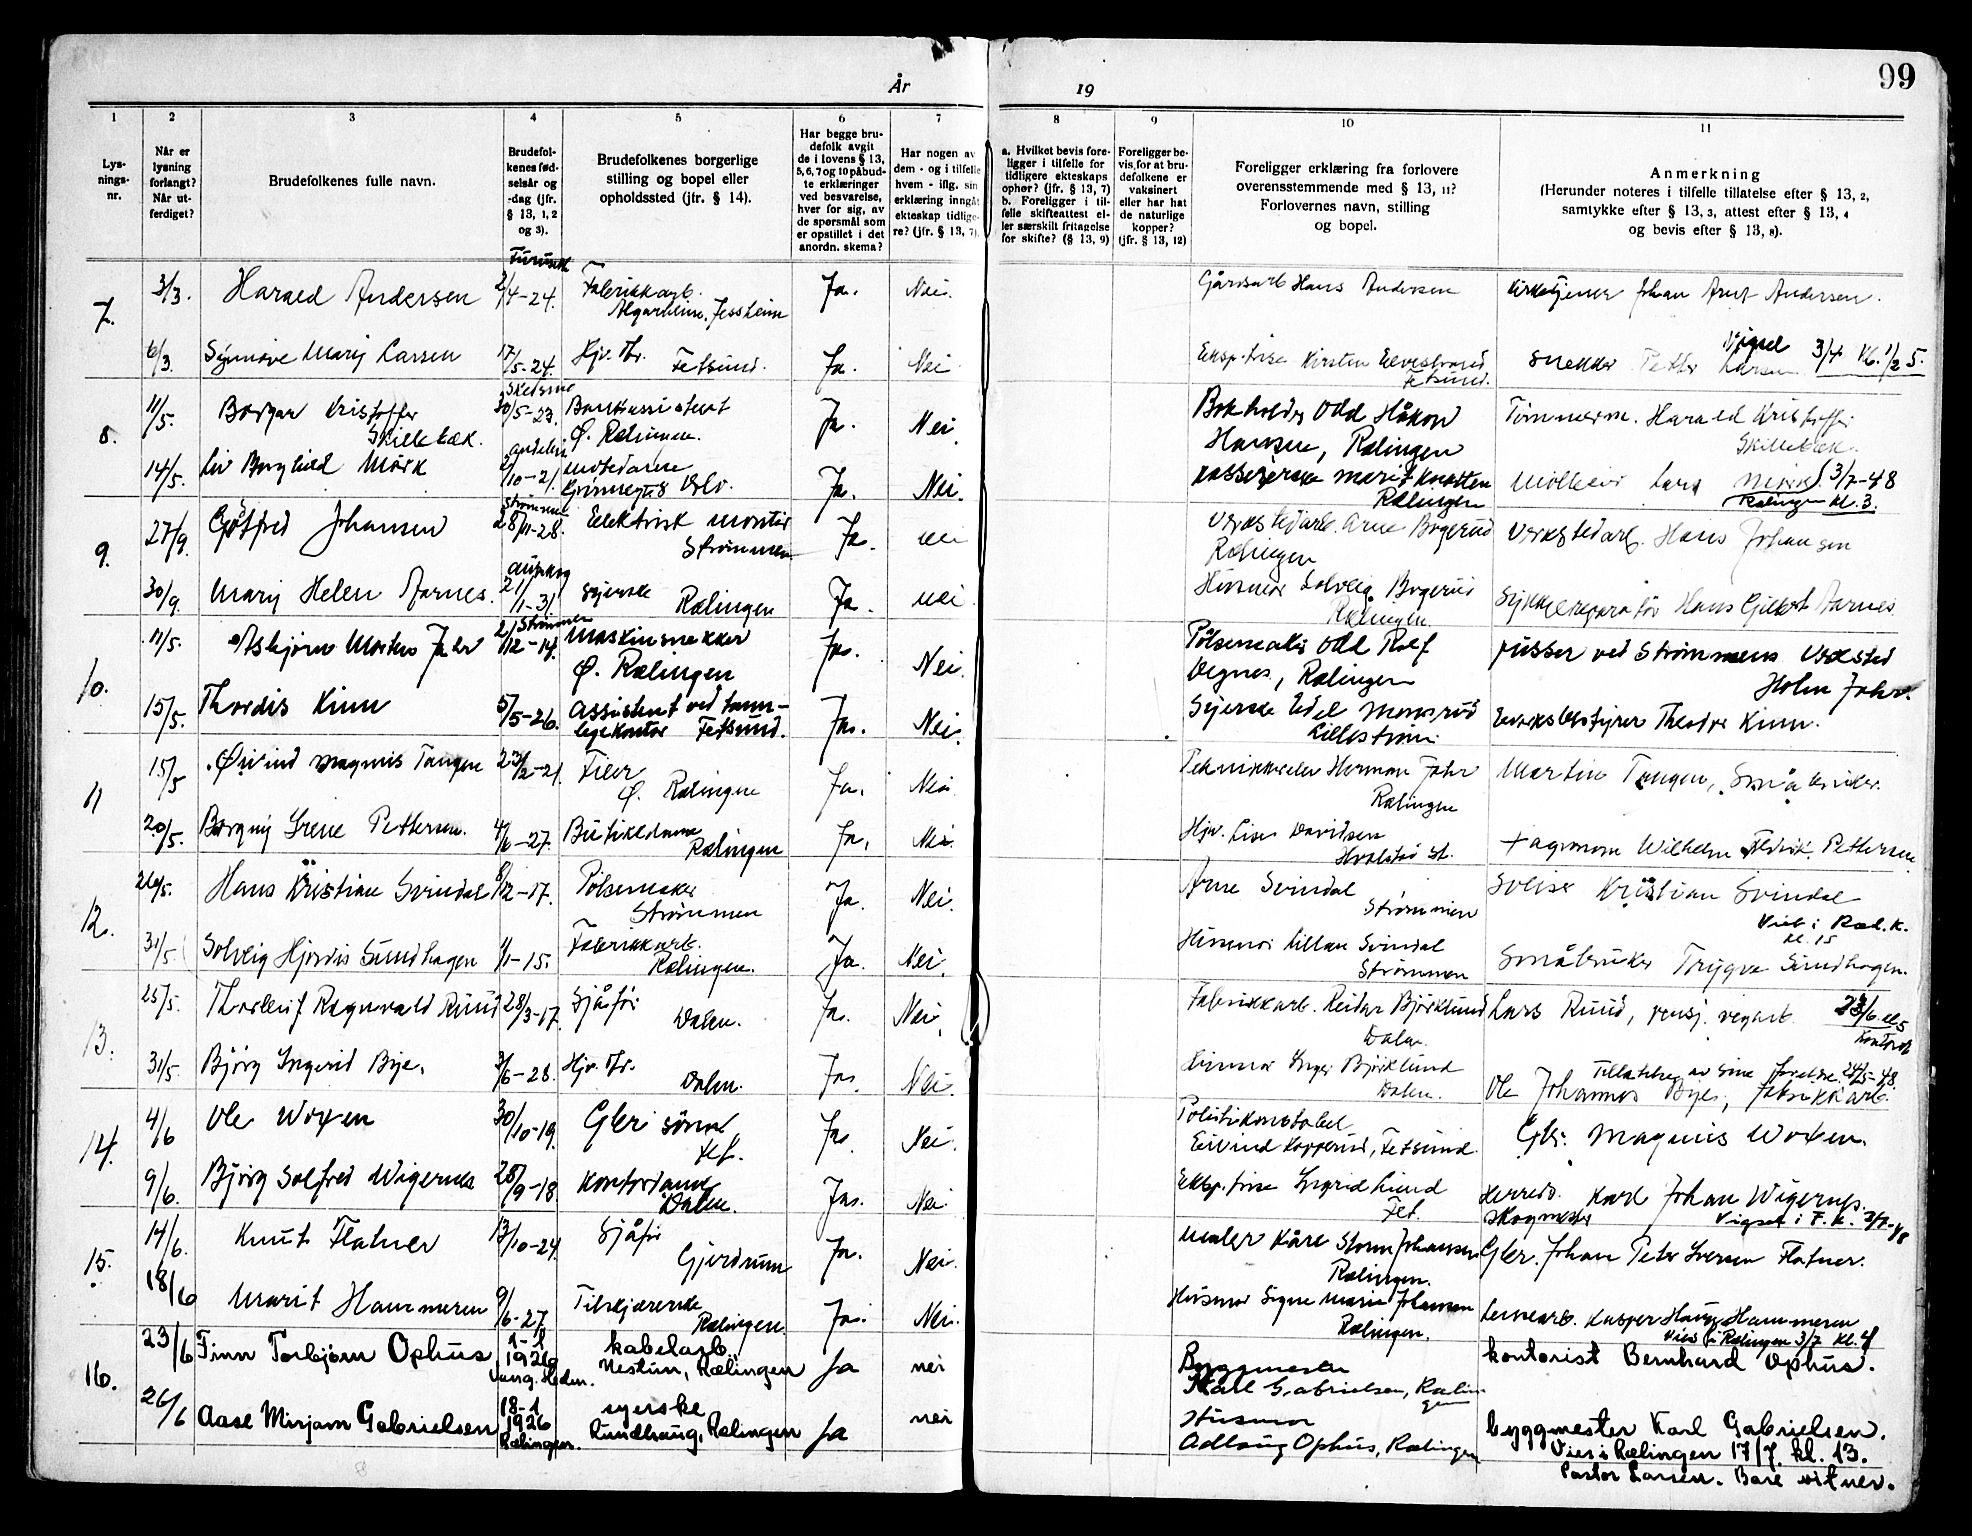 99
År
19
1
2
3
4
5
6
7
8
9
10
11
Lys-
nings-
nr.
Når er
lysning
forlangt?
Når ut-
ferdiget?
Brudefolkenes fulle navn.
Brudefol-
kenes fød-
selsår og
-dag (jfr.
§ 13, 1, 2
og 3).
Brudefolkenes borgerlige
stilling og bopel eller
opholdssted (jfr. § 14).
Har begge bru-
defolk avgit
de i lovens § 13,
5, 6, 7 og 10 påbud-
te erklæringer
ved besvarelse,
hver for sig, av
de spørsmål som
er opstillet i det
anordn. skema?
Har nogen av
dem - og i tilfelle
hvem - iflg. sin
erklæring inngåt
ekteskap tidlige-
re? (jfr. § 13, 7).
a. Hvilket bevis fore-
ligger i tilfelle for
tidligere ekteskaps
ophør? (jfr. § 13, 7)
b. Foreligger i til-
felle skifteattest el-
ler særskilt fritagelse
for skifte? (§ 13, 9)
Foreligger be-
vis for at bru-
defolkene er
vaksinert
eller har hat
de naturlige
kopper?
(jfr. § 13, 12)
Foreligger erklæring fra forlovere
overensstemmende med § 13, 11?
Forlovernes navn, stilling
og bopel.
Anmerkning
(Herunder noteres i tilfelle tillatelse efter § 13, 2,
samtykke efter § 13, 3, attest efter § 13, 4
og bevis efter § 13, 8).
7. 3/3. Harald Andersen 2/4-24. Fabrikkarb. Ja. Nei. Gårdsarb Hans Andersen Kirketjener Johan Arnt Andersen.
Algarheim, Jessheim
6/3. Synnøve Marij Larsen 17/5-24. Hjv. dtr. Fetsund. Ja. Nei Eksp.trise Kirsten Fetsund. Snekker Petter Larsen Vigsel 3/4 kl. 1/2 5.
8. 11/5. Borgar Kristoffer Skedsmo 30/5-23. Bankassistent Ja. Nei. Bokholder Odd Håkon Tømmerm. Harald Kristoffer
Skillebæk. Ø. Rælingen. Hansen, Rælingen Skillebæk.
14/5. Liv Borghild Mørk /10-21. motedame Oslo. Ja. Nei. kassererske Marit Rælingen Lars Mørk 3/7-48
Rælingen kl. 3.
9. 27/9. Gotfred Johansen Strømmen 28/11-28. Elektrisk montør Ja. nei Verkstedarb. Arne Bogerud Verkstedarb. Hans Johansen
Strømmen Rælingen
30/9. Marij Helen Aarnes. 21/1-31. syerske Rælingen Ja. nei Husmor Solveig Bogerud Sykkelreparatør Hans Gilbert Aarnes
Rælingen.
10. 11/5. Asbjørn Morten Jahr Strømmen 21/12-14. Maskinsnekker Ja. Nei. Pølsemaker Odd Rolf pusser ved Strømmens Verksted
Ø. Rælingen Vegnes, Rælingen Holm Jahr.
15/5. Thordis Kinn 5/5-26. assistent ved tann- Ja. Nei. Syerske Edel Monsrud Everksbestyrer Theodor Kinn.
legekontor Fetsund. Lillestrøm.
11 15/5 Øivind Magnus Tangen 23/2-21. Filer Ja. Nei. Teknikkeren Herman Jahr Martin Tangen, Småbruker.
Ø. Rælingen Rælingen
20/5. Borgny Irene Pettersen. 4/6-27. Butikkdame Ja. Nei. Hjv. Lise Davidsen Wilhelm Fredrik Pettersen
Rælingen Hvalstad st.
12. 26/5. Hans Kristian Svindal 8/12-17. Pølsemaker Ja. Nei. Arne Svindal Kristian Svindal
Strømmen Strømmen Viet i Ræl. k.
kl. 15
31/5 Solveig Hjørdis Sundhagen 1/1-15. Fabrikkarb. Ja. Nei. Husmor Lillian Svindal Småbruker Trygve Sundhagen.
Rælingen. Strømmen
13. 25/5. Thorleif Ragnvald Ruud 28/3-17. Sjåfør Ja. Nei. Fabrikkarb. Reidar Bjørklund Lars Ruud, pensj. vegarb. 23/6. kl 5
Dalen. Dalen. Kontoret
31/5. Bjørg Ingerid Bye. 3/6-28. Hjv. dtr. Ja. Nei. Husmor Inger Bjørklund Tillatelse av sine foreldre. 24/5-48.
Dalen. Dalen. Ole Johannes Bye, Fabrikkarb.
14. 4/6 Ole Woxen 30/10-19. Gbr. sønn Ja. Nei. Politikonstabel Gbr. Magnus Woxen.
Fet. Eivind Kopperud, Fetsund.
9/6. Bjørg Solfred Wigernes 28/9-18 Kontordame Ja. Nei. Eksp.trise Ingrid Lund Herreds- Karl Johan Wigernes.
Dalen. Fet. skogmester Vigsel i F. k. 3/7-48
15. 14/6. Knut Flatner 13/10-24. Sjåfør Ja. Nei. Maler Kåre Storm Johansen Gbr. Johan Peter Iversen Flatner.
Gjerdrum Rælingen.
18/6 Marit Hammeren 9/6-27. Tilskjærerske Ja. Nei. Husmor Signe Marie Johansen Kasper Haug Hammeren
Rælingen. Rælingen. Vies i Rælingen 3/7 kl. 4
16. 23/6 Finn Torbjørn Ophus 1-1 1926 kabelarb. ja nei Byggmester kontorist Bernhard Ophus.
Nestun, Rælingen Karl Gabrielsen, Rælin-
gen
26/6 Aase Mirjam Gabrielsen 18-1 1926 syerske ja nei Husmor byggmester Karl Gabrielsen.
Rælingen. Rundhaug, Rælingen Adlaug Ophus, Rælingen Vies i Rælingen 17/7. kl. 13.
Pastor Larsen. Bare vitner.